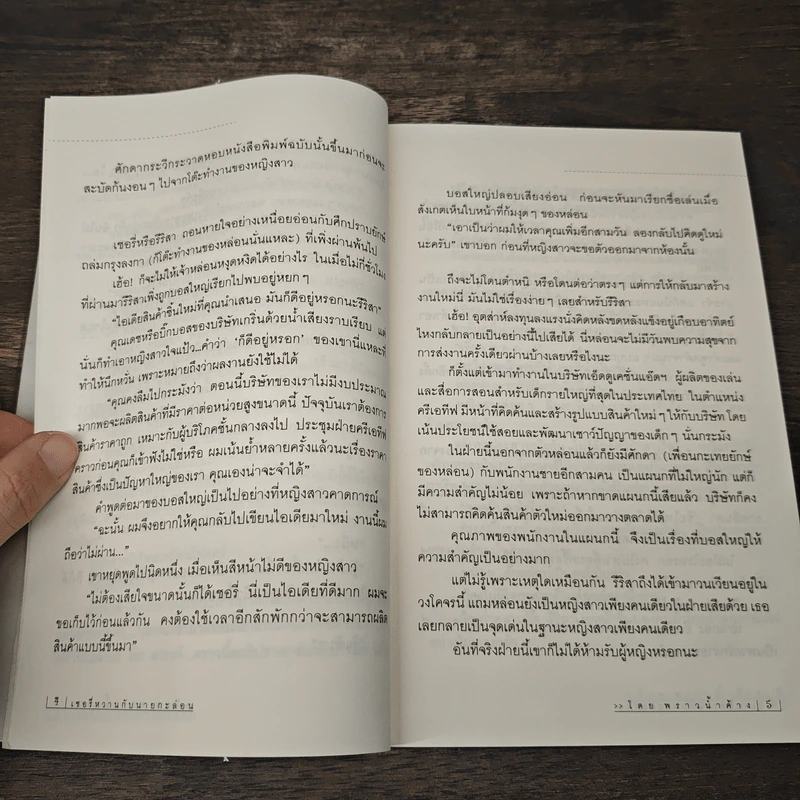 ศักดากระวีกระวาดหอบหนังสือพิมพ์ฉบับนั้นขึ้นมาก่อนจะ
สะบัดก้นงอนๆ ไปจากโต๊ะทำงานของหญิงสาว
เชอรี่หรือรีริสา ถอนหายใจอย่างเหนื่อยอ่อนกับศึกปราบยักษ์
ถล่มกรุงลงกา (ก็โต๊ะทำงานของหล่อนนั่นแหละ) ที่เพิ่งผ่านพ้นไป
เฮ้อ! ก็จะไม่ให้เจ้าหล่อนหงุดหงิดได้อย่างไร ในเมื่อไม่กี่ชั่วโมง
ที่ผ่านมารีริสาเพิ่งถูกบอสใหญ่เรียกไปพบอยู่หยกๆ
“ไอเดียสินค้าชิ้นใหม่ที่คุณนำเสนอ มันก็ดีอยู่หรอกนะรีริสา”
คุณเดชหรือบิ๊กบอสของบริษัทเกริ่นด้วยน้ำเสียงราบเรียบ แต่
นั่นก็ทำเอาหญิงสาวใจแป้ว...คำว่า ‘ก็ดีอยู่หรอก’ ของเขานี่แหละที่
ทำให้นึกหวั่น เพราะหมายถึงว่าผลงานยังใช้ไม่ได้
“คุณคงลืมไปกระมังว่า ตอนนี้บริษัทของเราไม่มีงบประมาณ
มากพอจะผลิตสินค้าที่มีราคาต่อหน่วยสูงขนาดนี้ ปัจจุบันเราต้องการ
สินค้าราคาถูก เหมาะกับผู้บริโภคชั้นกลางลงไป ประชุมฝ่ายครีเอทีฟ
คราวก่อนคุณก็เข้าฟังไม่ใช่หรือ ผมเน้นย้ำหลายครั้งแล้วนะเรื่องราคา
สินค้าซึ่งเป็นปัญหาใหญ่ของเรา คุณเองน่าจะจำได้”
คำพูดต่อมาของบอสใหญ่เป็นไปอย่างที่หญิงสาวคาดการณ์
“ฉะนั้น ผมจึงอยากให้คุณกลับไปเขียนไอเดียมาใหม่ งานนี้ผม
ถือว่าไม่ผ่าน...”
เขาหยุดพูดไปนิดหนึ่ง เมื่อเห็นสีหน้าไม่ดีของหญิงสาว
“ไม่ต้องเสียใจขนาดนั้นก็ได้เชอรี่ นี่เป็นไอเดียที่ดีมาก ผมจะ
ขอเก็บไว้ก่อนแล้วกัน คงต้องใช้เวลาอีกสักพักกว่าจะสามารถผลิต
สินค้าแบบนี้ขึ้นมา”
เชอรี่หวานกับนายกะล่อน
บอสใหญ่ปลอบเสียงอ่อน ก่อนจะหันมาเรียกชื่อเล่นเมื่อ
สังเกตเห็นใบหน้าที่ก้มงุดๆ ของหล่อน
“เอาเป็นว่าผมให้เวลาคุณเพิ่มอีกสามวัน ลองกลับไปคิดดูใหม่
นะครับ” เขาบอก ก่อนที่หญิงสาวจะขอตัวออกมาจากห้องนั้น
ถึงจะไม่โดนตำหนิ หรือโดนต่อว่าตรงๆ แต่การให้กลับมาสร้าง
งานใหม่นี่ มันไม่ใช่เรื่องง่ายๆ เลยสำหรับรีริสา
เฮ้อ! อุตส่าห์ลงทุนลงแรงนั่งคิดหลังขดหลังแข็งอยู่เกือบอาทิตย์
ไหงกลับกลายเป็นอย่างนี้ไปเสียได้ นี่หล่อนจะไม่มีวันพบความสุขจาก
การส่งงานครั้งเดียวผ่านบ้างเลยหรือไงนะ
ก็ตั้งแต่เข้ามาทำงานในบริษัทเอ็ดดูเคชั่นแอ๊ดฯ ผู้ผลิตของเล่น
และสื่อการสอนสำหรับเด็กรายใหญ่ที่สุดในประเทศไทย ในตำแหน่ง
ครีเอทีฟ มีหน้าที่คิดค้นและสร้างรูปแบบสินค้าใหม่ๆ ให้กับบริษัท โดย
เน้นประโยชน์ใช้สอยและพัฒนาเชาว์ปัญญาของเด็กๆ นั่นกระมัง
ในฝ่ายนี้นอกจากตัวหล่อนแล้วก็ยังมีศักดา (เพื่อนกะเทยยักษ์
ของหล่อน) กับพนักงานชายอีกสามคน เป็นแผนกที่ไม่ใหญ่นัก แต่ก็
มีความสำคัญไม่น้อย เพราะถ้าหากขาดแผนกนี้เสียแล้ว บริษัทก็คง
ไม่สามารถคิดค้นสินค้าตัวใหม่ออกมาวางตลาดได้
คุณภาพของพนักงานในแผนกนี้ จึงเป็นเรื่องที่บอสใหญ่ให้
ความสำคัญเป็นอย่างมาก
แต่ไม่รู้เพราะเหตุใดเหมือนกัน รีริสาถึงได้เข้ามาวนเวียนอยู่ใน
วงโคจรนี้ แถมหล่อนยังเป็นหญิงสาวเพียงคนเดียวในฝ่ายเสียด้วย เธอ
เลยกลายเป็นจุดเด่นในฐานะหญิงสาวเพียงคนเดียว
อันที่จริงฝ่ายนี้เขาก็ไม่ได้ห้ามรับผู้หญิงหรอกนะ
>> โดย พราวน้ำค้าง 5